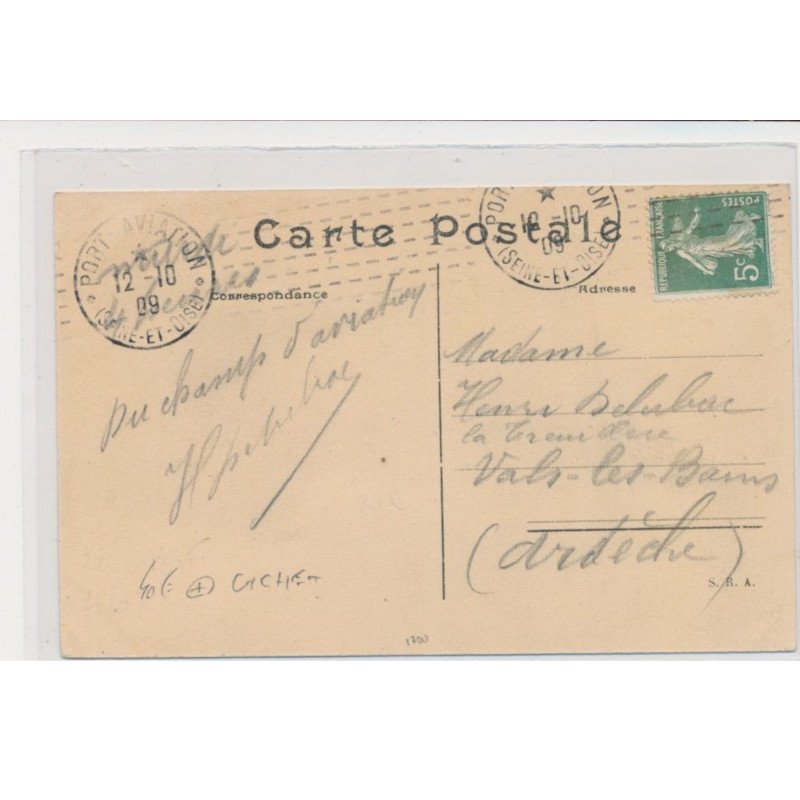 PORT AVIATION
12 - 10
09
(SEINE-ET-OISE)
4 heures
Carte Postale
PORT
12 - 10
09
(SEINE-ET-OISE)
REPUBLIQUE FRANÇAISE
POSTES
5c
Correspondance
Adresse
Du champ d'aviation
Madame
Henri Delubac
la
Vals-les-Bains
(Ardèche)
40€ + CACHET
S. R. A.
1200